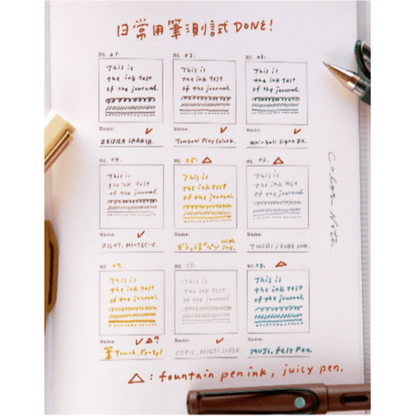 日常用筆測試 DONE!
No. 01.
This is
the ink test
of the journal.
Name:
ZEBRA SARASA.
No. 02.
This is
the ink test
of the journal.
Name:
Tombow
No. 03.
This is
the ink test
of the journal.
Name:
Uni-ball Signo
No. 04.
This is
the ink test
of the journal.
Name:
PILOT. HI-TEC-C
No. 05. △
This is
the ink test
of the journal.
Name:
with
ink
No. 06. △
This is
the ink test
of the journal.
Name:
ink.
No. 07.
This is
the ink test
of the journal.
Name:
筆 Touch, Pentel
No. 08.
This is
the ink test
of the journal.
Name:
COPIC, MULTI LINER
No. 09. △
This is
the ink test
of the journal.
Name:
MUJI, Pen.
Color Note.
△: fountain pen ink, juicy pen.